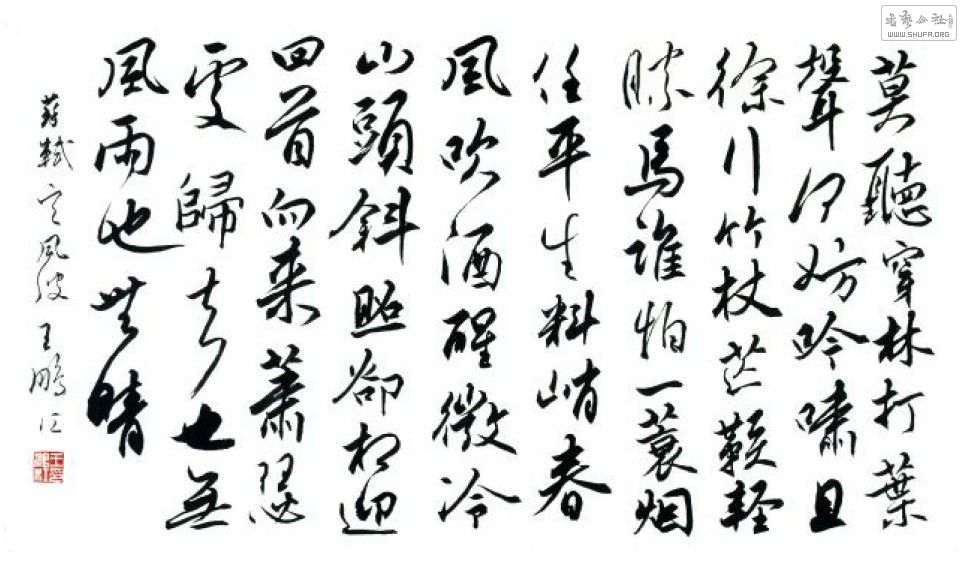 莫聽穿林打葉
聲何妨吟嘯且
徐行竹杖芒鞋軽
勝馬誰怕一蓑烟
任平生料峭春
風吹酒醒微冷
山頭斜照卻相迎
回首向来蕭瑟
處歸去也無
風雨也無晴
蘇軾定風波 王鵬江
書艺公社
WWW.SHUFA.ORG